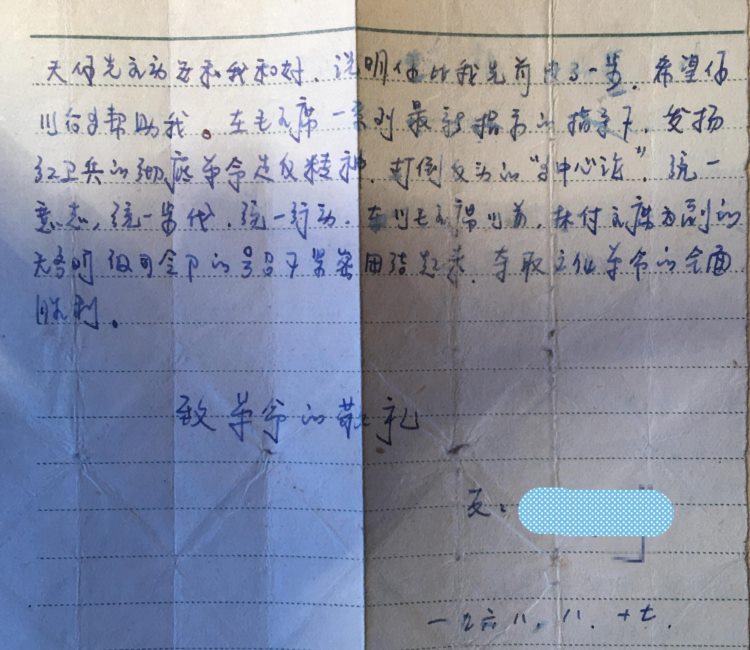 天你先主动要和我和好，说明你比我先前进了一步，希望你
以后多帮助我。在毛主席一系列最新指示的指导下，发扬
红卫兵的彻底革命造反精神，打倒反动的“多中心论”，统一
意志，统一步伐，统一行动，在以毛主席为首，林付主席为副的
无产阶级司令部的号召下紧密团结起来，夺取文化革命的全面
胜利。
致革命的敬礼
友：
一九六八．八．十七．